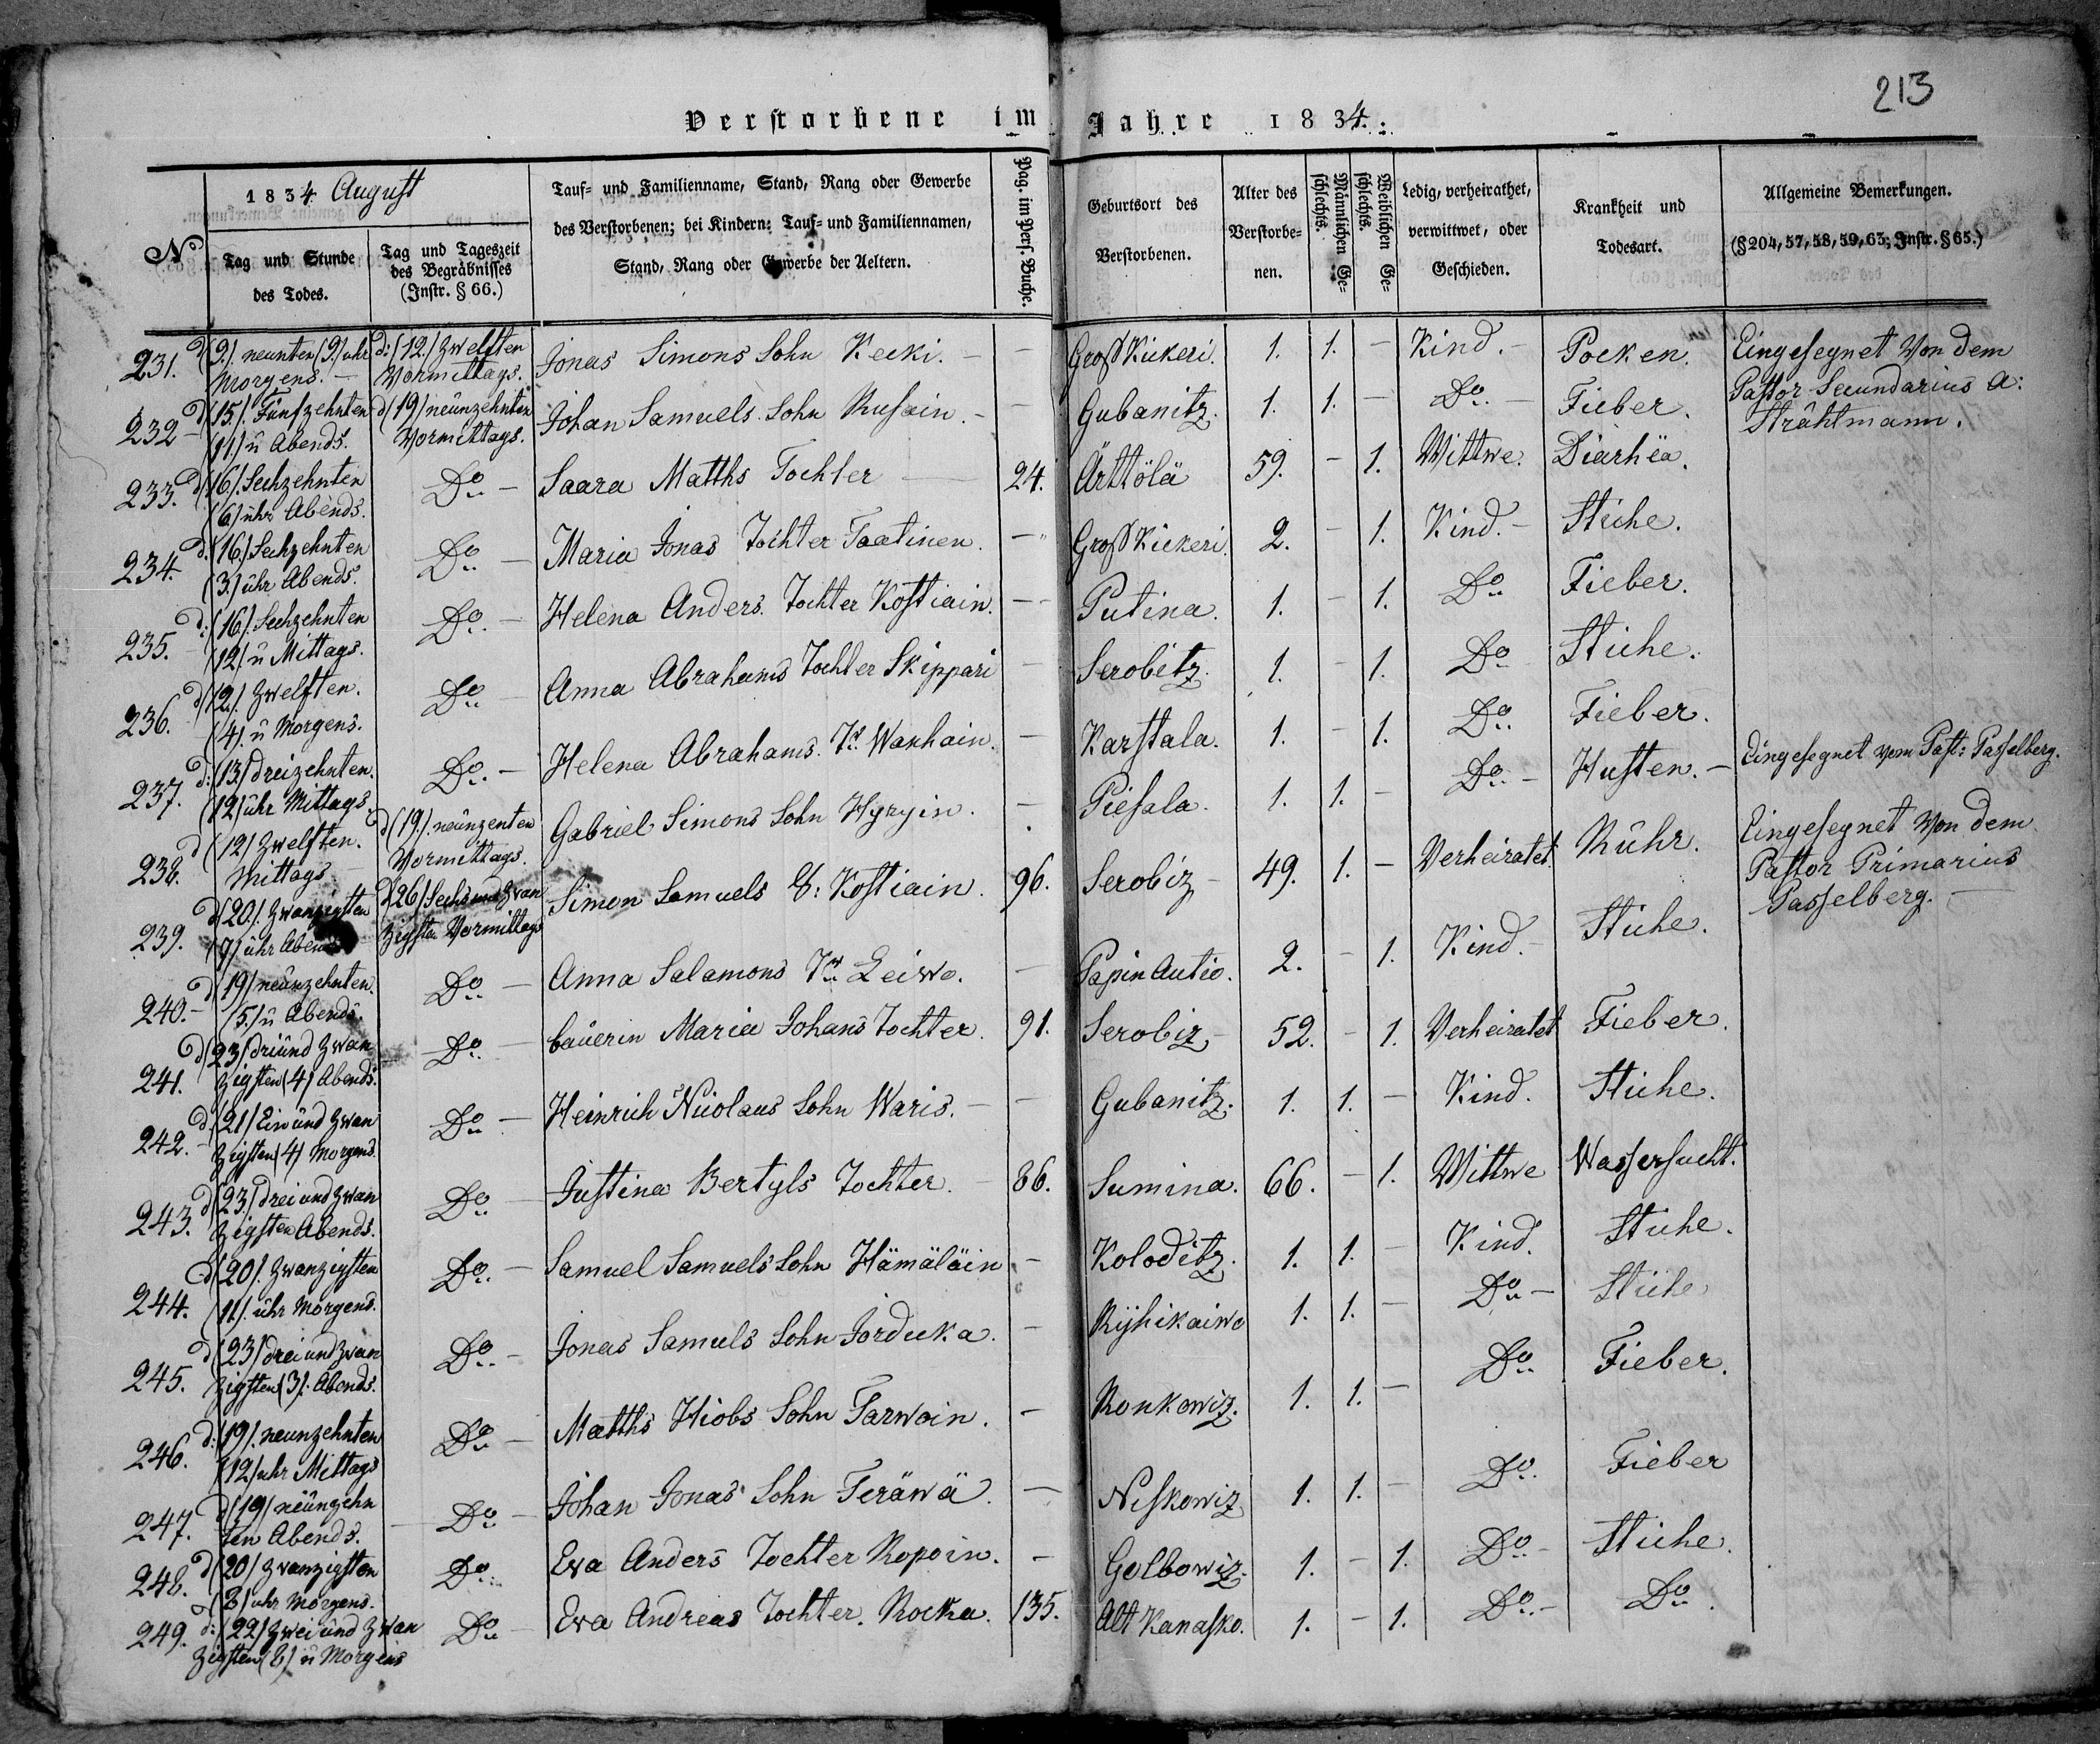 213
Verstorbene im Jahre 1834.
No
1834 August
Tag und Stunde des Todes.
Tag und Tageszeit des Begräbnisses (Instr. § 66.)
Tauf- und Familienname, Stand, Rang oder Gewerbe des Verstorbenen; bei Kindern: Tauf- und Familiennamen, Stand, Rang oder Gewerbe der Aeltern.
Pag. im Pers. Buche.
Geburtsort des Verstorbenen.
Alter des Verstorbenen.
Männlichen Geschlechts.
Weiblichen Geschlechts.
Ledig, verheirathet, verwittwet, oder Geschieden.
Krankheit und Todesart.
Allgemeine Bemerkungen. (§ 204, 57, 58, 59, 63; Instr. § 65.)
231. d (9.) neunten (9.) uhr Morgens. — d: (12.) Zwelften Vormittags. Jonas Simons Sohn Kecki. — — Groß Kickeri. 1. 1. — Kind. — Pocken. Eingesegnet Von dem Pastor Secundarius A: Strählmann.
232 — d (15). Fünfzehnten (11.) ü Abends. d (19) neünzehnten Vormittags. Johan Samuels Sohn Rusain. — — Gubanitz. 1. 1. — Do — Fieber.
233. d (16). Sechzehnten (6) ühr Abends. Do — Saara Matths Tochter — 24. Ärttölä 59. — 1. Wittwe. Diarhëa.
234. d. (16.) Sechzehnten (3.) ühr Abends. Do — Maria Jonas Tochter Taatinen. — Groß Kickeri. 2. — 1. Kind. — Stiche.
235. d: (16). Sechzehnten (12). ü Mittags. Do. — Helena Anders. Tochter Kostiain. — Putina. 1. — 1. Do Fieber.
236. d (12.) Zwelften. (4). ü Morgens. Do — Anna Abrahams Tochter Skippari — Serobitz. 1. — 1. Do Stiche.
237. d: (13) dreizehnten. (12) ühr Mittags. Do. — Helena Abrahams. Tr. Wanhain. — Karstala. 1. — 1. Do. Fieber.
238. d (12) Zwelften. Mittags — d (19.). neünzenten Vormittags. Gabriel Simons Sohn Hyryin. — Piesala. 1. 1. — Do. — Husten. — Eingesegnet vom Past: Passelberg.
239. d (20). Zwanzigsten (7) ühr Abends d (26) Sechs und Zwanzigsten Vormittags Simon Samuels S: Kostiain. 96. Serobiz — 49. 1. — Verheiratet Rühr. Eingesegnet Von dem Pastor Primarius Passelberg. —
240. — d (19) neünzehnten. (5.) ü Abends. Do — Anna Salamons Tr Leiwo. — Papin Autio. 2. — 1. Kind. — Stiche.
241. d (23) driünd Zwanzigsten (4) Abends. Do. — baüerin Maria Johans Tochter. 91. Serobiz, — 52. — 1. Verheiratet Fieber.
242. — d (21) Ein ünd Zwanzigsten (4) Morgens. Do — Heinrich Nicolaus Sohn Waris. — — Gubanitz. 1. 1. — Kind. Stiche.
243. d (23.) drei und Zwanzigsten Abends. Do — Justina Bertyls Tochter. — 86. Sumina. 66. — 1. Wittwe Wassersucht.
244. d (20). Zwanzigsten (11). ühr Morgens. Do. — Samuel Samuels Sohn Hämäläin — Koloditz. 1. 1. — Kind. Stiche.
245. d (23) drei und Zwanzigsten (3). Abends. Do. — Jonas Samuels Sohn Jorducka. — Ryhikaiwo 1. 1. — Do — Stiche
246. d: (19). neunzehnten (12) uhr Mittags Do — Matths Hiobs Sohn Tarwoin. — Ronkowiz. 1. 1. — Do. Fieber.
247. d (19) neünzehnten Abends. — Do — Johan Jonas Sohn Teräwä. — Neskowiz 1. 1. — Do. Fieber
248. d (20) Zwanzigsten (8) uhr Morgens. Do. Eva Anders Tochter Ropoin. — Golbowiz. 1. — 1. Do — Stiche.
249. d: (22) Zwei ünd Zwanzigsten (8) ü Morgens Do — Eva Andreas Tochter. Rocka. 135. Alt Kanasko. 1. — 1. Do. — Do.